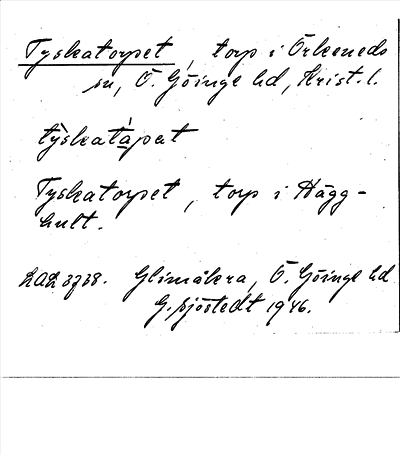 Tyskatorpet, torp i Örkeneds
sn, Ö. Göinge hd, Krist. l.
tỳskatá̱pat
Tyskatorpet, torp i Hägg-
hult.
LAL 3738. Glimåkra, Ö. Göinge hd
G. Sjöstedt 1946.